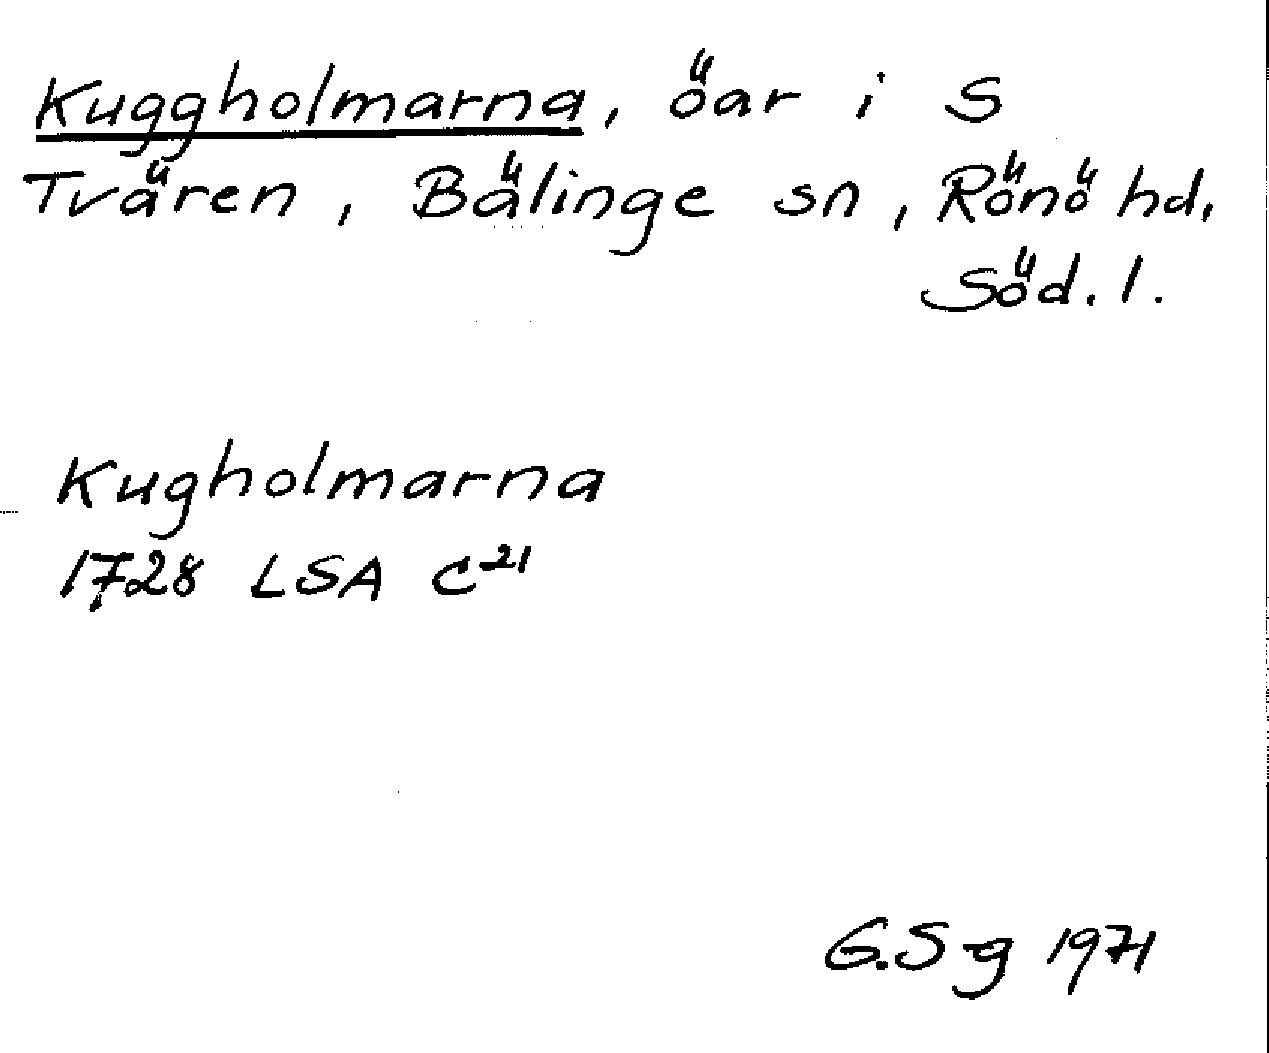 Kuggholmarna, öar i S
Tvären, Bälinge sn, Rönö hd,
Söd. l.
Kugholmarna
1728 LSA C²¹
G.S-g 1971